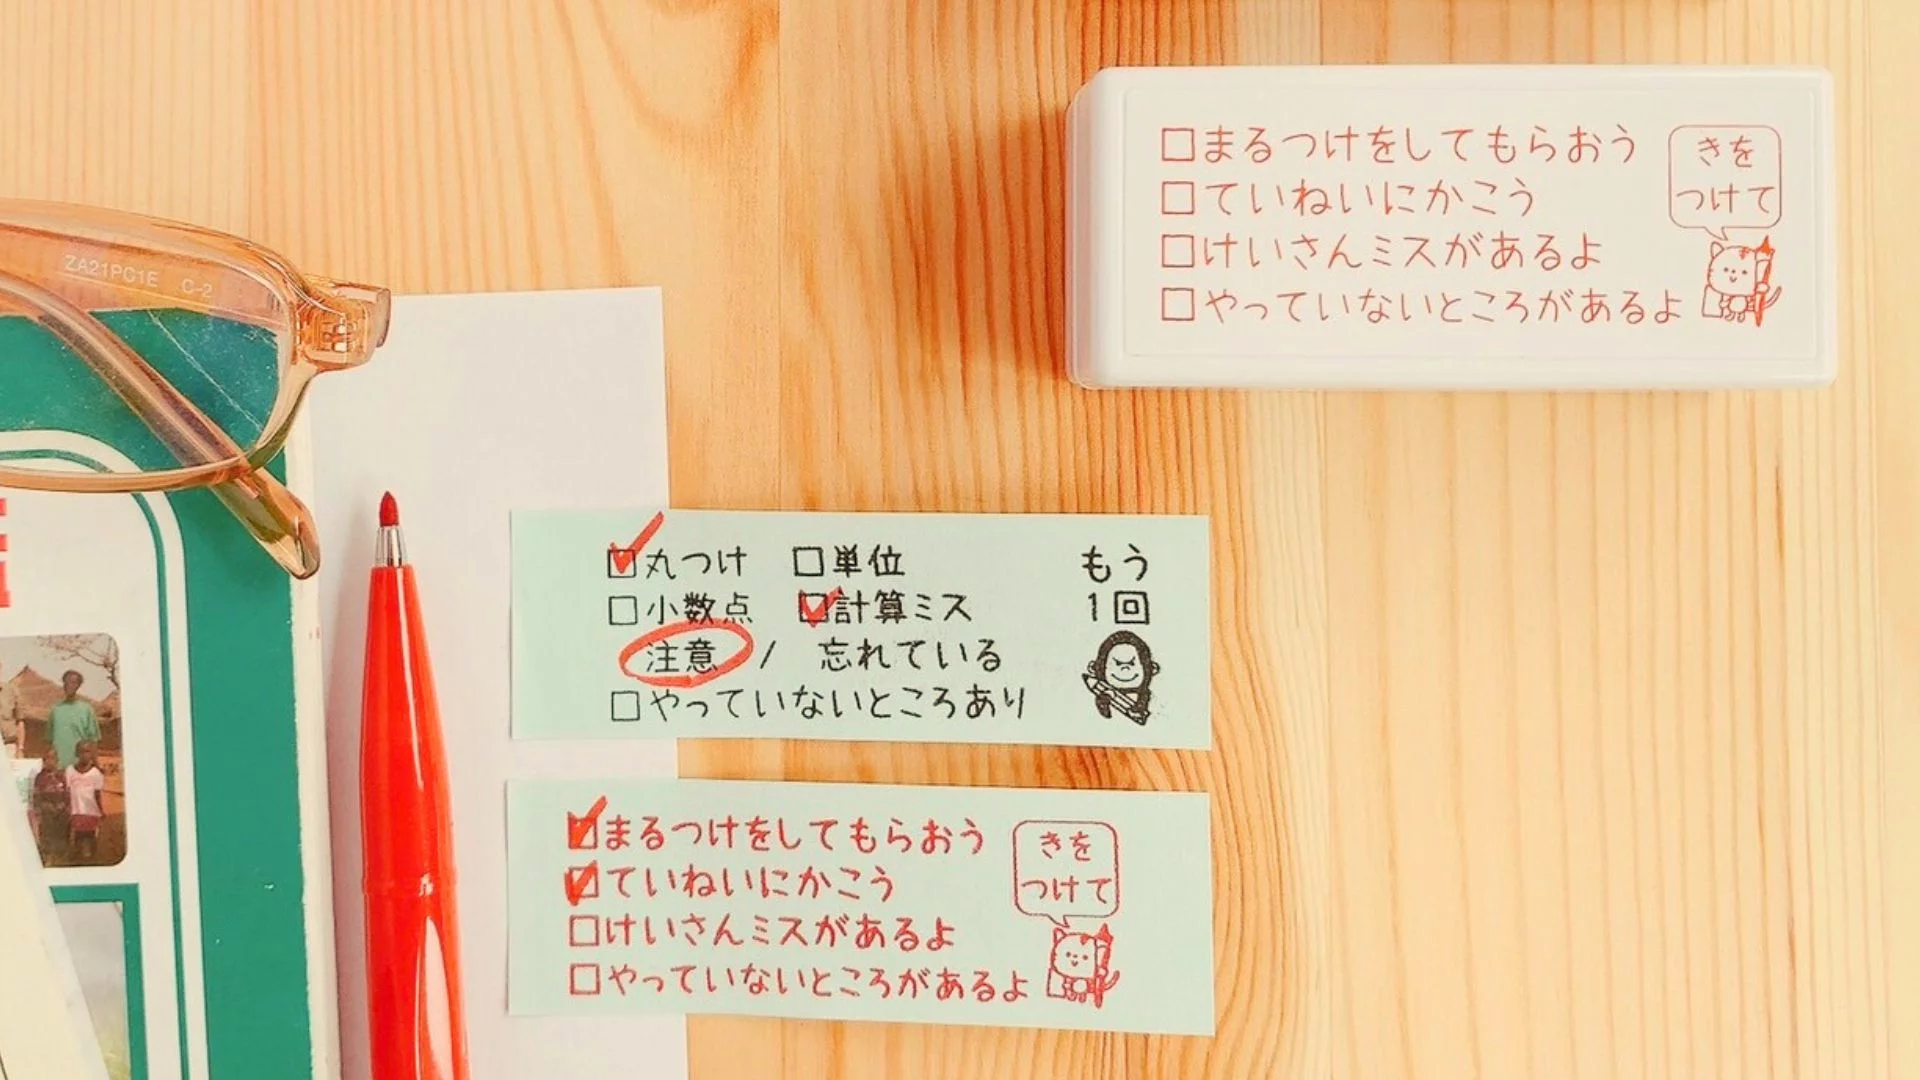 □まるつけをしてもらおう
□ていねいにかこう
□けいさんミスがあるよ
□やっていないところがあるよ
きを
つけて
ZA21PG1E C-2
□丸つけ □単位
□小数点 □計算ミス
注意 / 忘れている
□やっていないところあり
もう
1回
□まるつけをしてもらおう
□ていねいにかこう
□けいさんミスがあるよ
□やっていないところがあるよ
きを
つけて